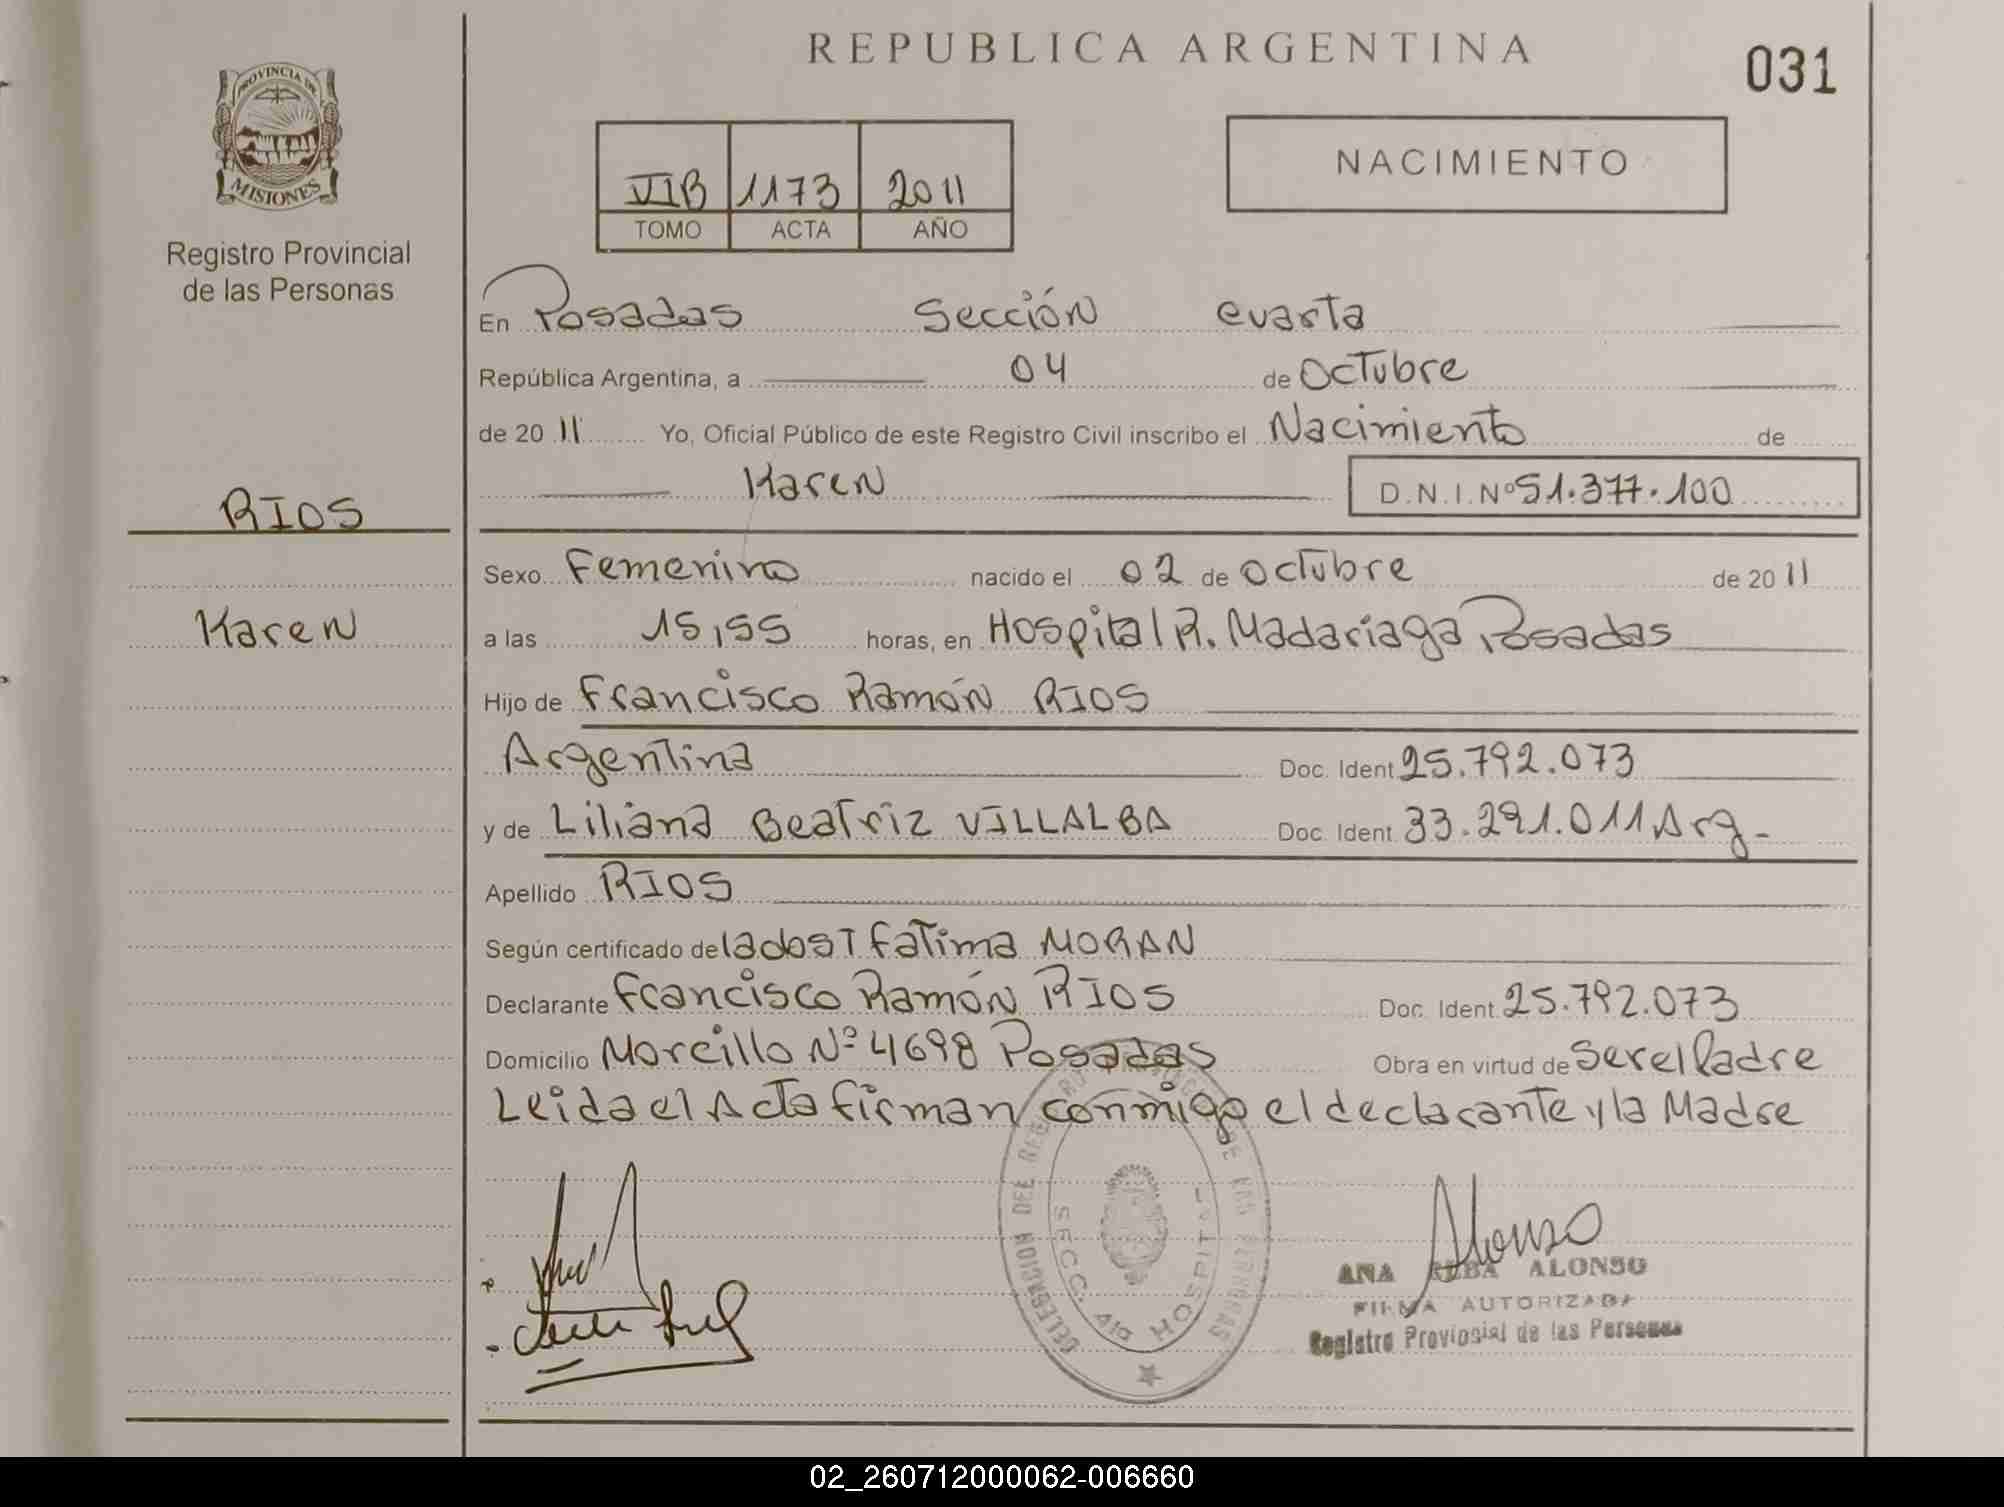 REPUBLICA ARGENTINA
031
PROVINCIA DE
MISIONES
Registro Provincial
de las Personas
VIB 1173 2011
TOMO ACTA AÑO
NACIMIENTO
En Posadas Sección cuarta
República Argentina, a 04 de Octubre
de 20 11 Yo, Oficial Público de este Registro Civil inscribo el Nacimiento de
Karen D.N.I.Nº 51.377.100
RIOS
Karen
Sexo Femenino nacido el 02 de Octubre de 20 11
a las 15,55 horas, en Hospital R. Madariaga Posadas
Hijo de Francisco Ramón RIOS
Argentina Doc. Ident. 25.792.073
y de Liliana Beatriz VILLALBA Doc. Ident. 33.291.011 Arg-
Apellido RIOS
Según certificado de la obst Fatima MORAN
Declarante Francisco Ramón RIOS Doc. Ident. 25.792.073
Domicilio Morcillo Nº 4698 Posadas Obra en virtud de ser el Padre
Leida el Acta firman conmigo el declarante y la Madre
DELEGACION DEL REGISTRO PROVINCIAL DE LAS PERSONAS
SECC. 4ta HOSPITAL
Alonso
ANA ALONSO
FIRMA AUTORIZADA
Registro Provincial de las Personas
02_260712000062-006660